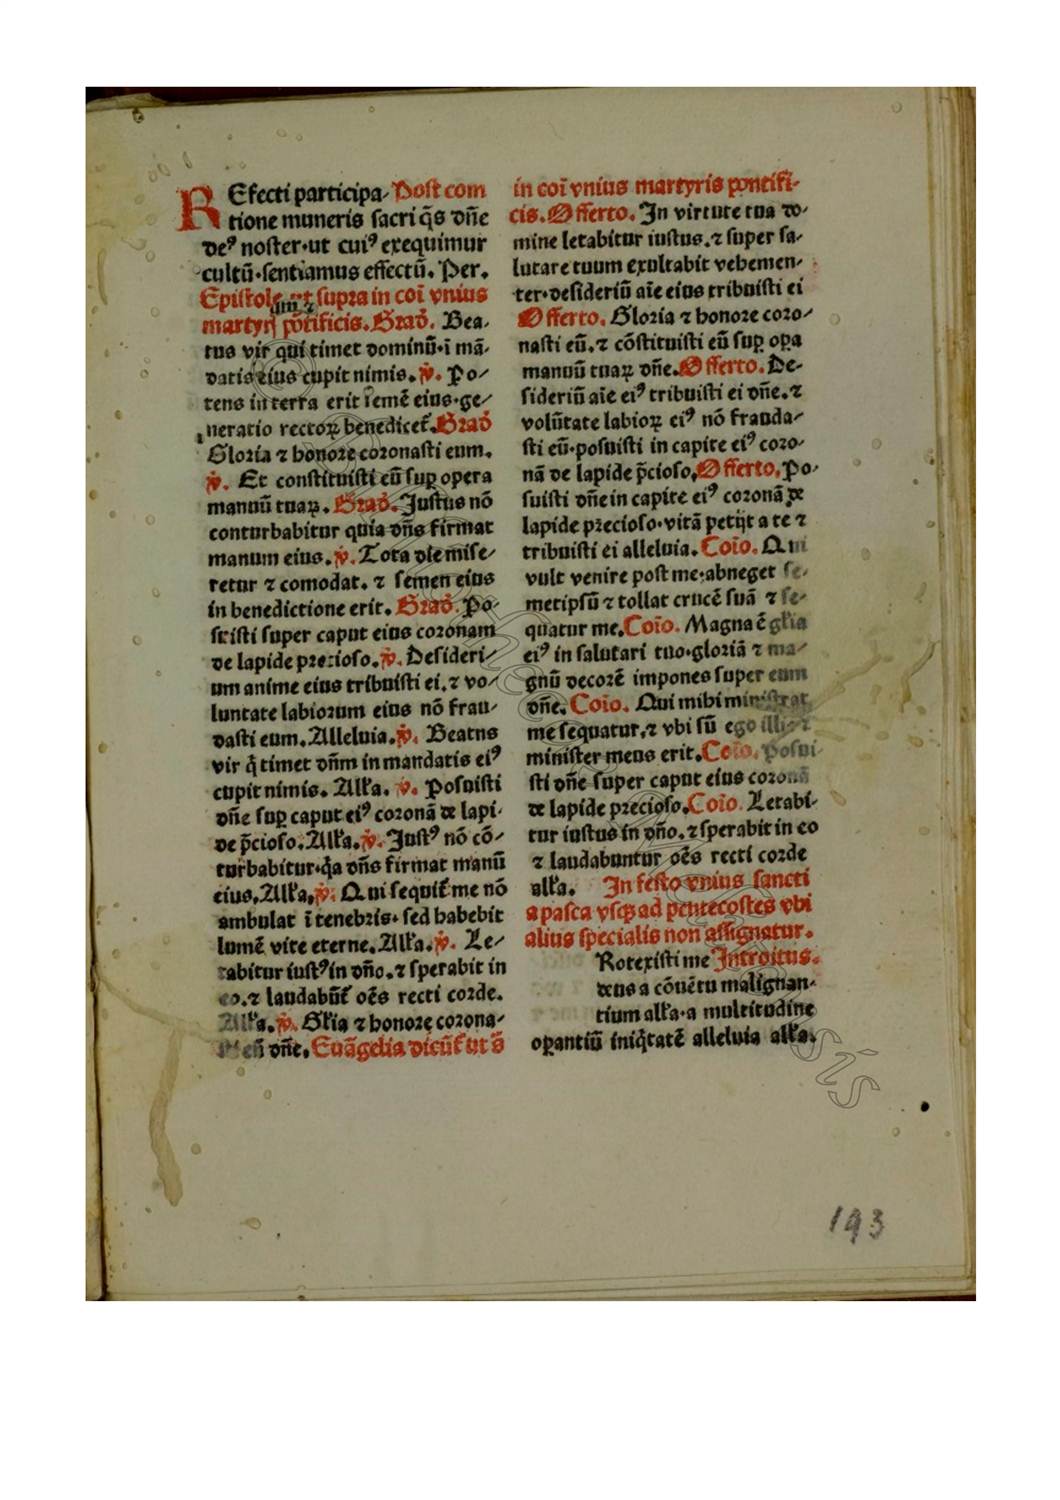 REfecti participa⸗ Post com
tione muneris sacri q̃s dñe
deꝰ noster·ut cuiꝰ exequimur
cultũ·sentiamus effectũ. Per.
Epistole ut supra in coĩ vnius
martyrꝭ põtificis. Grad̃. Bea⸗
tus vir qui timet dominũ·ĩ mã⸗
datis eius cupit nimis. ꝟ. Po⸗
tens in terra erit semẽ eius·ge⸗
neratio rectoꝝ benedicet᷑. Grad̃
Gloria ⁊ honore coronasti eum.
ꝟ. Et constituisti eũ suꝑ opera
manuũ tuaꝝ. Grad̃. Justus nõ
conturbabitur quia dñs firmat
manum eius. ꝟ. Tota die mise⸗
retur ⁊ comodat. ⁊ semen eius
in benedictione erit. Grad̃. Po⸗
suisti super caput eius coronam
de lapide precioso. ꝟ. Desideri⸗
um anime eius tribuisti ei. ⁊ vo⸗
luntate labiorum eius nõ frau⸗
dasti eum. Alleluia. ꝟ. Beatus
vir q̃ timet dñm in mandatis eiꝰ
cupit nimis. Allꝛa. ꝟ. Posuisti
dñe suꝑ caput eiꝰ coronã de lapi⸗
de p̃cioso. Allꝛa. ꝟ. Justꝰ nõ cõ⸗
turbabitur·q̃a dñs firmat manũ
eius. Allꝛa. ꝟ. Qui sequit᷑ me nõ
ambulat ĩ tenebris· sed habebit
lumẽ vite eterne. Allꝛa. ꝟ. Le⸗
tabitur iustꝰ in dño. ⁊ sperabit in
eo. ⁊ laudabũt᷑ oẽs recti corde.
Allꝛa. ꝟ. Glꝛia ⁊ honore corona⸗
sti eũ dñe. Euãgelia dicũt᷑ ut s̃
in coĩ vnius martyris pontifi⸗
cis. Offerto. In virtute tua do⸗
mine letabitur iustus. ⁊ super sa⸗
lutare tuum exultabit vehemen⸗
ter·desideriũ aĩe eius tribuisti ei
Offerto. Gloria ⁊ honore coro⸗
nasti eũ. ⁊ cõstituisti eũ suꝑ oꝑa
manuũ tuaꝝ dñe. Offerto. De⸗
sideriũ aĩe eiꝰ tribuisti ei dñe. ⁊
volũtate labioꝝ eiꝰ nõ frauda⸗
sti eũ·posuisti in capite eiꝰ coro⸗
nã de lapide p̃cioso. Offerto. Po⸗
suisti dñe in capite eiꝰ coronã de
lapide precioso·vitã petijt a te ⁊
tribuisti ei alleluia. Coĩo. Qui
vult venire post me·abneget se⸗
metipsũ ⁊ tollat crucẽ suã ⁊ se⸗
quatur me. Coĩo. Magna ẽ glꝛia
eiꝰ in salutari tuo·gloriã ⁊ ma⸗
gnũ decorẽ impones super eum
dñe. Coĩo. Qui mihi ministrat
me sequatur. ⁊ vbi sũ ego illic ⁊
minister meus erit. Coĩo. Posui
sti dñe super caput eius coronã
de lapide precioso. Coĩo. Letabi⸗
tur iustus in dño. ⁊ sperabit in eo
⁊ laudabuntur oẽs recti corde
allꝛa. In festo vnius sancti
a pasca vsqꝫ ad pentecostes vbi
alius specialis non assignatur.
Rotexisti me Introitus.
deus a cõuẽtu malignan⸗
tium allꝛa·a multitudine
oꝑantiũ iniq̃tatẽ alleluia allꝛa.
193